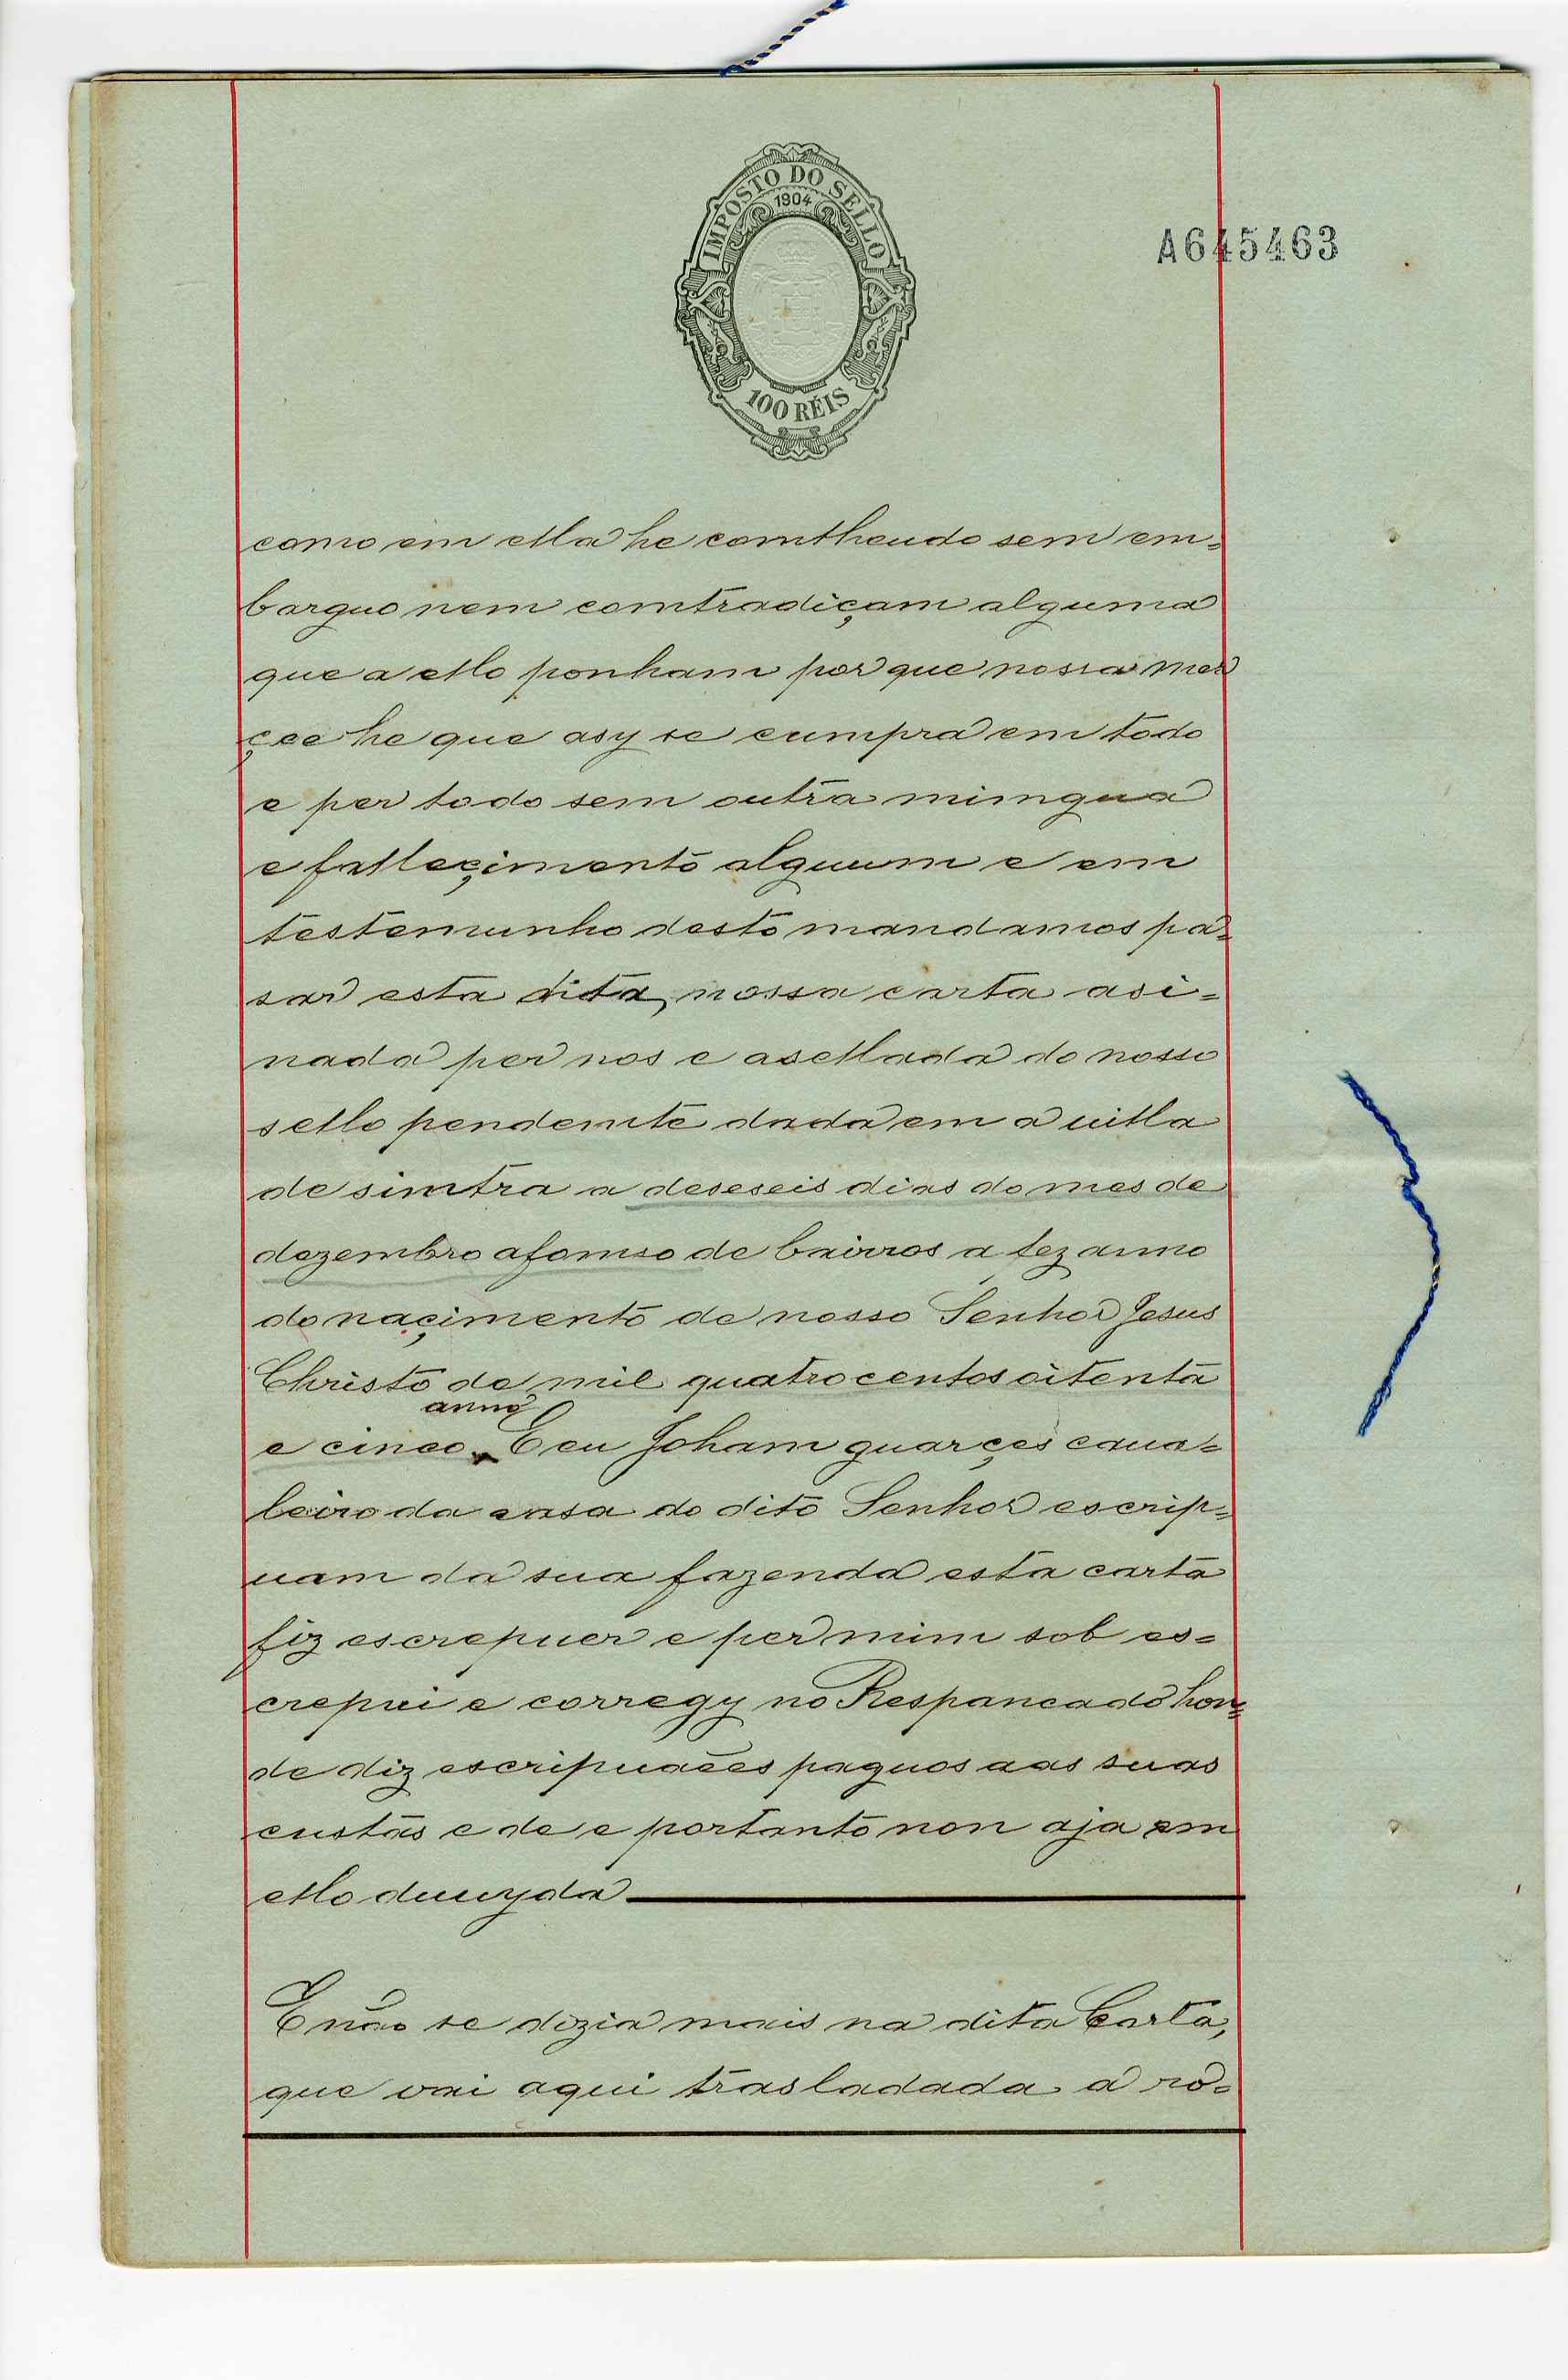 IMPOSTO DO SELLO
1904
100 RÉIS
A645463
como em ella he comtheudo sem em=
barguo nem comtradiçam alguma
que a ello ponham por que nossa mer
çee he que asy se cumpra em todo
e per todo sem outra mimgua
e falleçimento alguum e em
testemunho desto mandamos pa=
sar esta dita, nossa carta asi=
nada per nos e asellada do nosso
sello pendemte dada em a uilla
de simtra a deseseis dias do mes de
dezembro afomso de bairros a fez anno
do naçimento de nosso Senhor Jesus
Christo de mil quatrocentos oitenta
anno
e cinco. E eu Joham guarçes caua=
leiro da casa do dito Senhor escrip=
uam da sua fazenda esta carta
fiz escrepuer e per mim sob es=
crepui e corregy no Respancado hon=
de diz escripuães paguos aas suas
custas e de e portanto non aja em
ello duuyda
E não se dizia mais na dita Carta,
que vai aqui trasladada a rô=